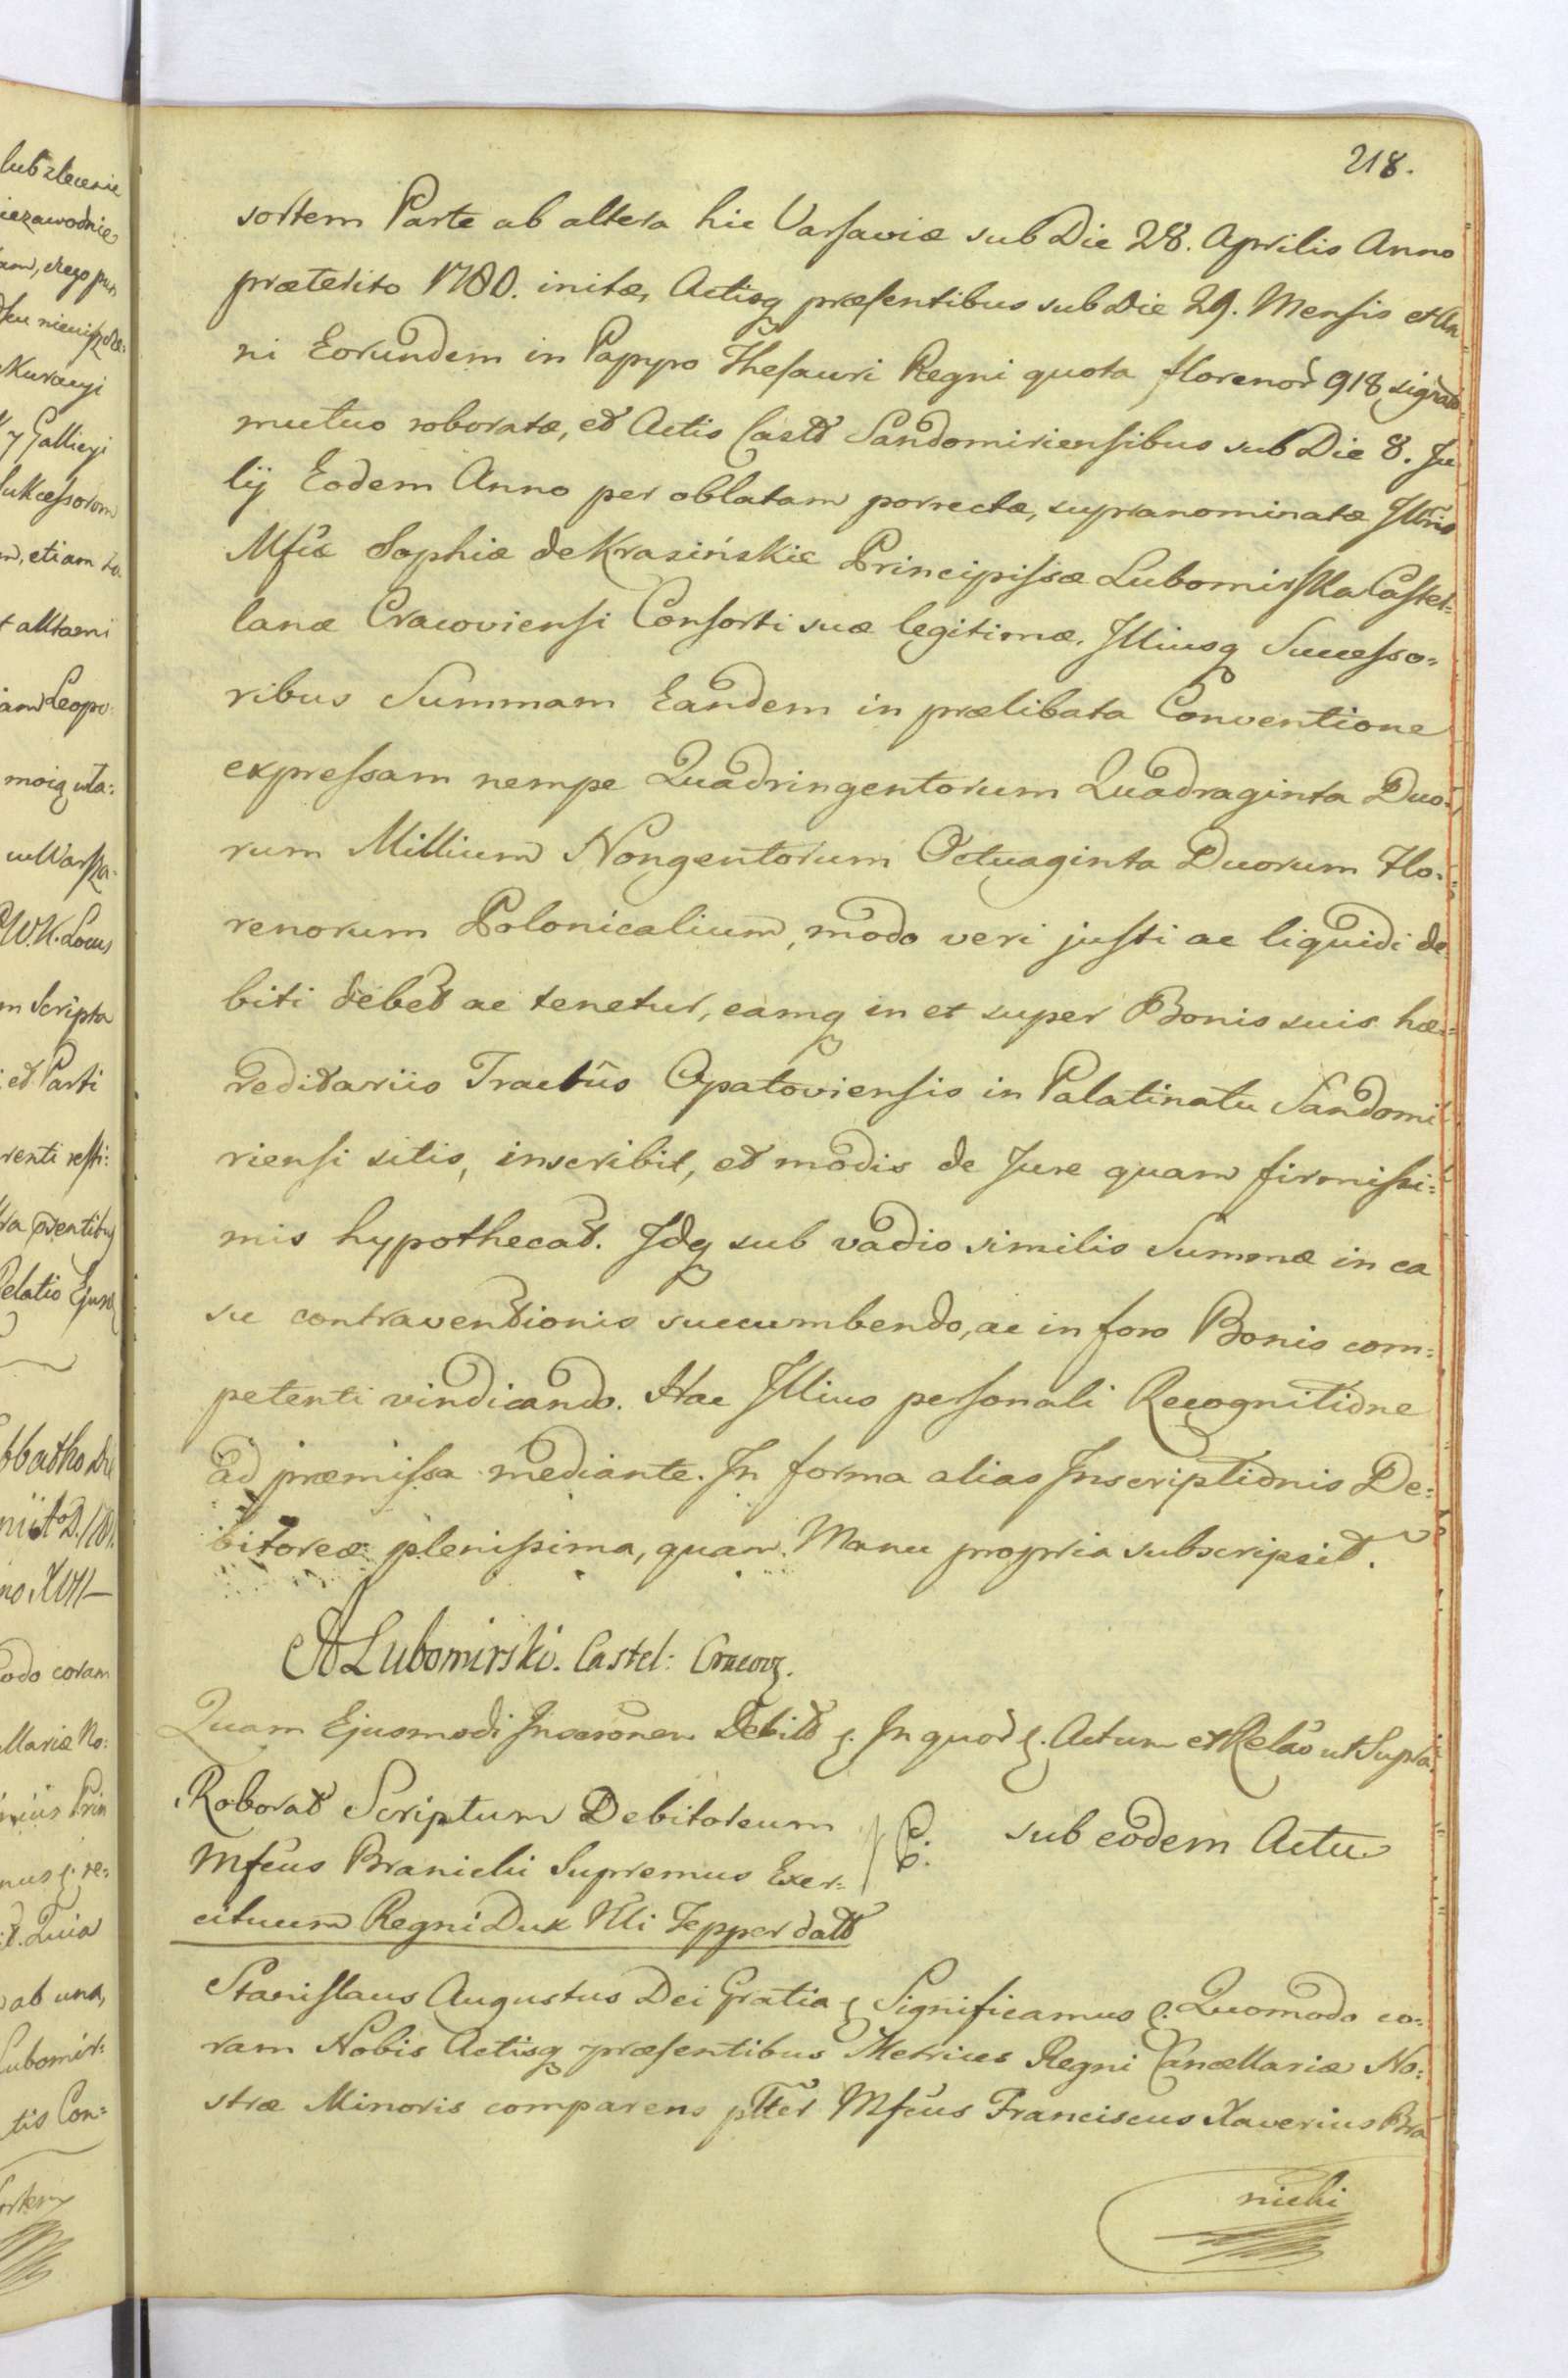 218.
sortem Parte ab altera hic Varsaviæ sub Die 28. Aprilis Anno
præterito 1780. initæ, Actisq præsentibus sub Die 29. Mensis et An
ni Eorundem in Papyro Thesauri Regni quota florenor 918 signato
mutuo roboratæ, et Actis Castr Sandomiriensibus sub Die 8. Ju
lij Eodem Anno per oblatam porrectæ, supranominatæ Illris
Mfcæ Sophiæ de Krasińskie Principissæ Lubomirska Castel=
lanæ Cracoviensi Consorti suæ legitimæ. Illiusq Successo=
ribus Summam Eandem in prælibata Conventione
expressam nempe Quadringentorum Quadraginta Duo=
rum Millium Nongentorum Octuaginta Duorum Flo=
renorum Polonicalium, modo veri justi ac liquidi de
biti debet ac tenetur, eamq in et super Bonis suis hæ=
reditariis Tractûs Opatoviensis in Palatinatu Sandomi
riensi sitis, inscribit, et modis de Jure quam firmissi=
mis hypothecat. Idq sub vadio similis Summæ in ca
su contraventionis succumbendo, ac in foro Bonis com=
petenti vindicando. Hac Illius personali Recognitione
ad præmissa mediante. In forma alias Inscriptionis De=
bitoreæ plenissima, quam Manu propria subscripsit.
A Lubomirski. Castel: Cracov.
Quam Ejusmodi Inscronem Debit. In quor. Actum et Relao ut Supra.
Roborat Scriptum Debitoreum
Mfcus Branicki Supremus Exer=
cituum Regni Dux Nli Tepper datt
sub eodem Actu
Stanislaus Augustus Dei Gratia Significamus. Quomodo co=
ram Nobis Actisq præsentibus Metrices Regni Cancellariæ No=
stræ Minoris comparens pltter Mfcus Franciscus Xaverius Bra
nicki